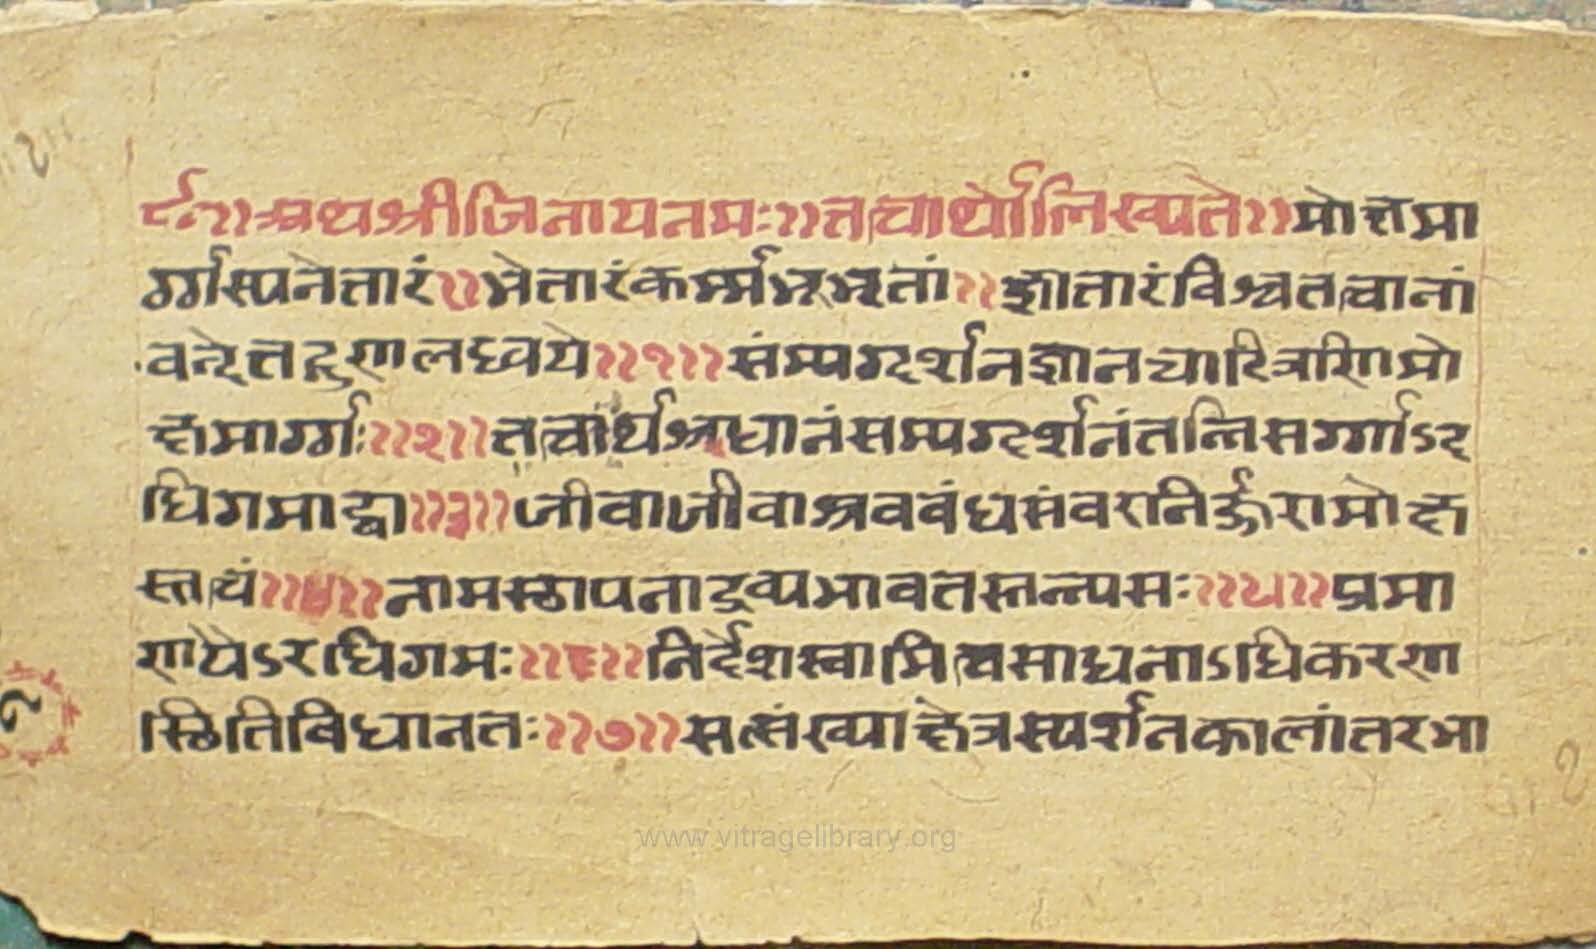 र्द०॥अथश्रीजिनायनमः॥तत्वार्थोलिख्यते॥मोक्षमा
र्ग्गस्यनेत्तारं॥भेतारंकर्म्मभूभृतां॥ज्ञातारंविश्वतत्वानां
वन्देतद्गुणालध्वये॥१॥संम्यग्दर्शनज्ञानचारित्रणिमो
क्षमार्ग्गः॥२॥तत्वार्थश्रधानंसम्यग्दर्शनंतन्निसर्ग्गाऽद
धिगमाद्वा॥३॥जीवाजीवाश्रवबंधसंवरानिर्ज्जरामोक्ष
स्तत्वं॥४॥नामस्थापनाद्रव्यभावतस्तन्न्यसः॥५॥प्रमा
णयेऽरधिगमः॥६॥निर्देशस्वामित्वसाधनाऽधिकरण
स्थितिविधानतः॥७॥सत्संख्याक्षेत्रस्पर्शनकालांतरभा
२
www.vitragelibrary.org